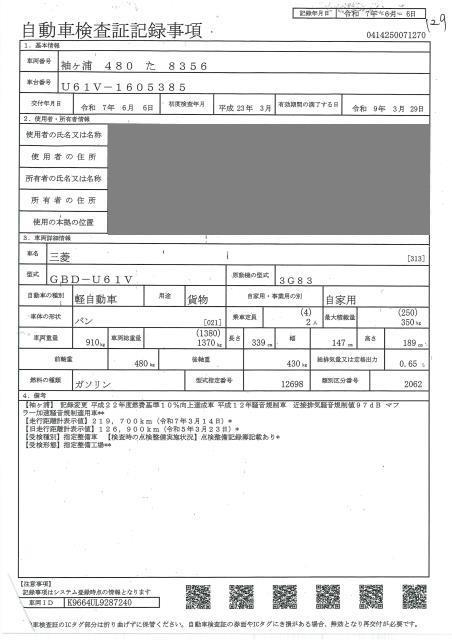 記録年月日 令和 7年 6月 6日
129
自動車検査証記録事項
0414250071270
1. 基本情報
車両番号 袖ヶ浦 480 た 8356
車台番号 U61V-1605385
交付年月日 令和 7年 6月 6日 初度検査年月 平成 23年 3月 有効期間の満了する日 令和 9年 3月 29日
2. 使用者・所有者情報
使用者の氏名又は名称
使用者の住所
所有者の氏名又は名称
所有者の住所
使用の本拠の位置
3. 車両詳細情報
車名 三菱 [313]
型式 GBD-U61V 原動機の型式 3G83
自動車の種別 軽自動車 用途 貨物 自家用・事業用の別 自家用
車体の形状 バン [021] 乗車定員 (4) 2人 最大積載量 (250) 350kg
車両重量 910kg 車両総重量 (1380) 1370kg 長さ 339cm 幅 147cm 高さ 189cm
前軸重 480kg 後軸重 430kg 総排気量又は定格出力 0.65 L
燃料の種類 ガソリン 型式指定番号 12698 類別区分番号 2062
4. 備考
【袖ヶ浦】 記録変更 平成22年度燃費基準10%向上達成車 平成12年騒音規制車 近接排気騒音規制値97dB マフ
ラー加速騒音規制適用車**
【走行距離計表示値】219,700km(令和7年3月14日)*
【旧走行距離計表示値】126,900km(令和5年3月23日)*
【受検種別】指定整備車 【検査時の点検整備実施状況】点検整備記録簿記載あり*
【受検形態】指定整備工場**
【注意事項】
記録事項はシステム登録時点の情報となります
車両ID K9664UL9287240
車検査証のICタグ部分は折り曲げずに保管ください。自動車検査証の券面やICタグにき損がある場合、無効となり再交付が必要です。